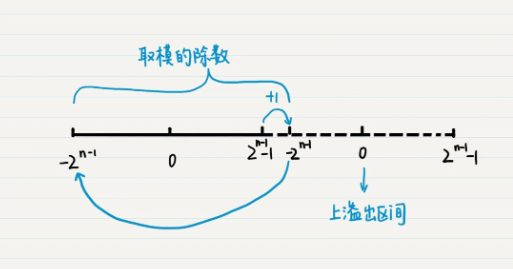 取模的除数
+1
-2ⁿ⁻¹ 0 2ⁿ⁻¹-1 -2ⁿ⁻¹ 0 2ⁿ⁻¹-1
上溢出区间